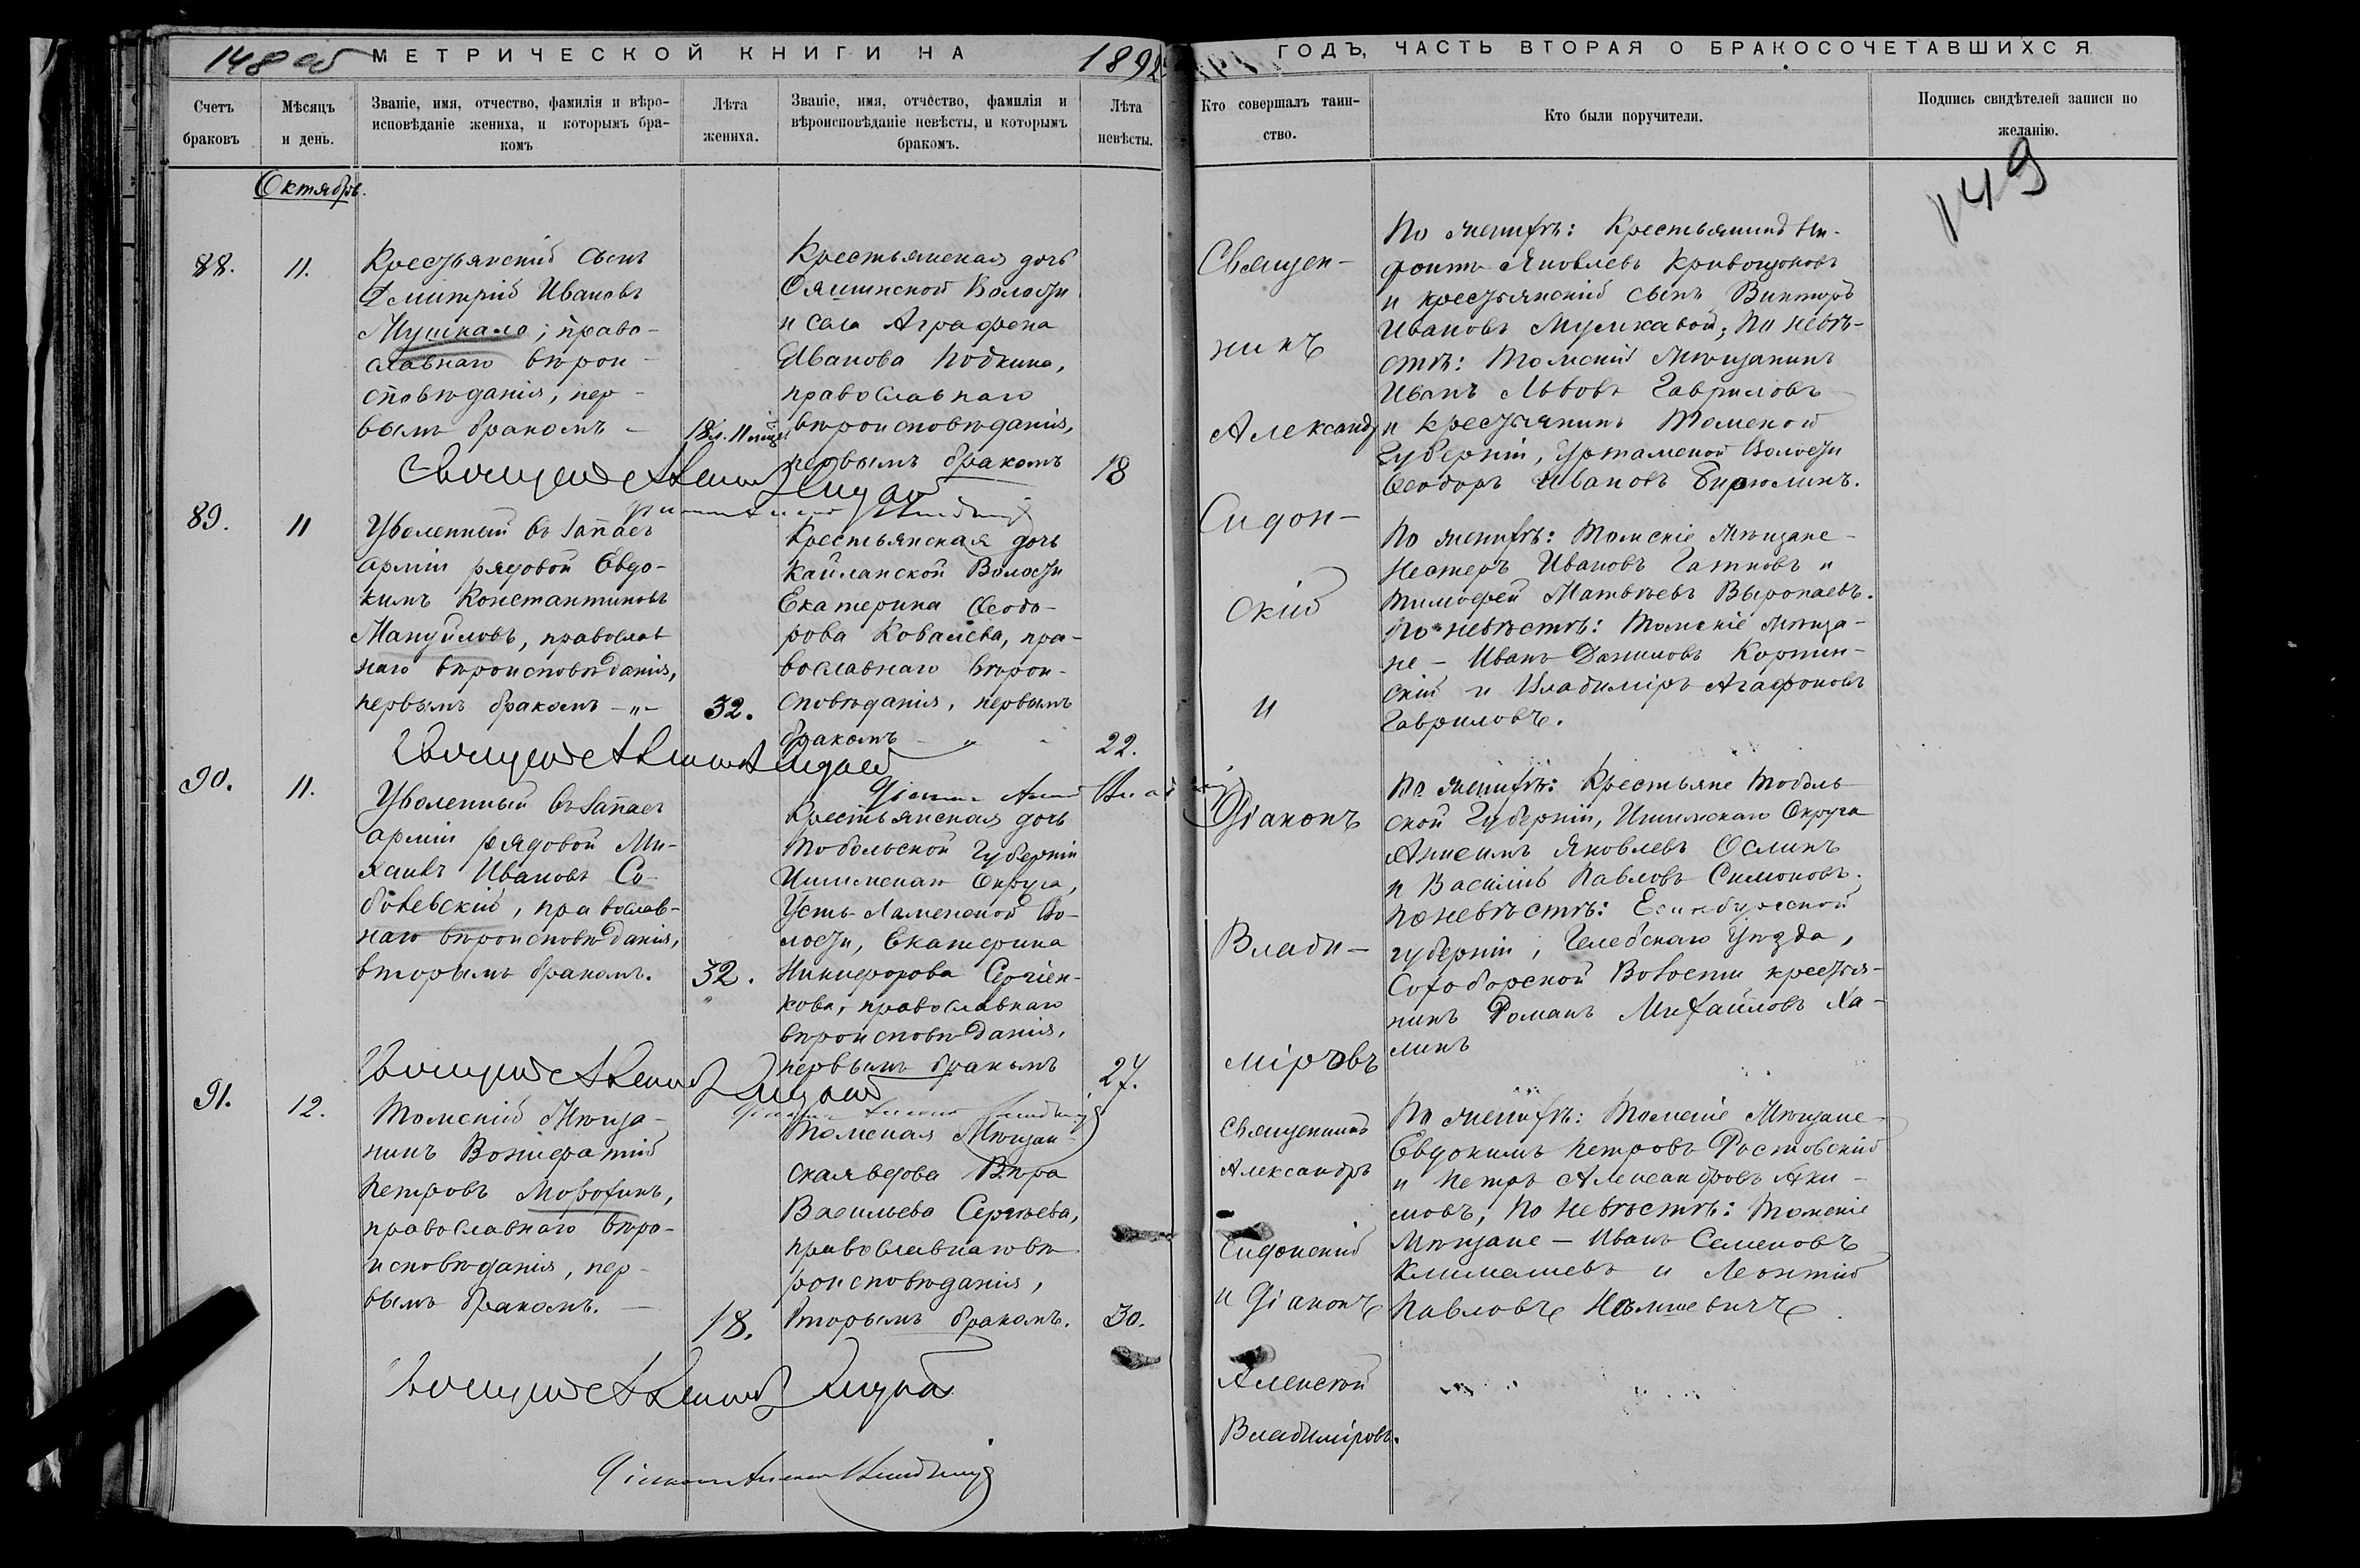 148 об МЕТРИЧЕСКОЙ КНИГИ НА 1892
ГОДЪ, ЧАСТЬ ВТОРАЯ О БРАКОСОЧЕТАВШИХСЯ
Счетъ
браковъ
Мѣсяцъ
и день.
Званіе, имя, отчество, фамилія и вѣро-
исповѣданіе жениха, и которымъ бра-
комъ
Лѣта
жениха.
Званіе, имя, отчество, фамилія и
вѣроисповѣданіе невѣсты, и которымъ
бракомъ.
Лѣта
невѣсты.
Кто совершалъ таин-
ство.
Кто были поручители.
Подпись свидѣтелей записи по
желанію.
149
Октябрь.
88.
11.
Крестьянскій сынъ
Дмитрій Ивановъ
право-
славнаго вѣрои-
сповѣданія, пер-
вымъ бракомъ –
18 л. 11 мѣс
Крестьянская дочь
Ояшинской Волости
и села Аграфена
Иванова Подкина,
православнаго
вѣроисповѣданія,
первымъ бракомъ
18
По женихѣ: Крестьянинъ Ни-
фонтъ Яковлевъ Кривощоковъ
и крестьянскій сынъ Викторъ
Ивановъ По невѣ-
стѣ: Томскій мѣщанинъ
Иванъ Львовъ Гавриловъ
и крестьянинъ Томской
Губерніи, Уртамской Волости
Ѳеодоръ Ивановъ Бирюлинъ.
89.
11
Уволенный въ запасъ
арміи рядовой Евдо-
кимъ Константиновъ
Мануйловъ, православ
наго вѣроисповѣданія,
первымъ бракомъ –„–
32.
Крестьянская дочь
Кайлинской Волости
Екатерина Ѳеодо-
рова Ковалева, пра-
вославнаго вѣрои-
сповѣданія, первымъ
бракомъ
22.
По женихѣ: Томскіе мѣщане –
Несторъ Ивановъ и
Тимоѳей Матвѣевъ Выропаевъ.
По невѣстѣ: Томскіе мѣща-
не – Иванъ Даниловъ
скій и Владиміръ Агафоновъ
Гавриловъ.
90.
11.
Уволенный въ запасъ
арміи рядовой Ми-
хаилъ Ивановъ Со-
болевскій, православ-
наго вѣроисповѣданія,
вторымъ бракомъ.
32.
Крестьянская дочь
Тобольской Губерніи
Ишимскаго Округа,
Усть-Ламенской Во-
лости, Екатерина
Никифорова Сергіен-
кова, православнаго
вѣроисповѣданія,
первымъ бракомъ
27.
По женихѣ: Крестьяне Тоболь-
ской Губерніи, Ишимскаго Округа
Анисимъ Яковлевъ Ослинъ
и Василій Павловъ Симоновъ.
По невѣстѣ:
губерніи, Уѣзда,
Волости крестья-
нинъ Романъ Михайловъ Ха-
линъ
91.
12.
Томскій Мѣща-
нинъ Вонифатій
Петровъ Морозинъ,
православнаго вѣро-
исповѣданія, пер-
вымъ бракомъ. –
18.
Томская Мѣщан-
ская вдова Вѣра
Васильева Сергѣева,
православнаго вѣ-
роисповѣданія,
вторымъ бракомъ.
30.
По женихѣ: Томскіе Мѣщане –
Евдокимъ Петровъ Ростовскій
и Петръ Александровъ Аки-
мовъ, По невѣстѣ: Томскіе
Мѣщане – Иванъ Семеновъ
и Леонтій
Павловъ
Священ-
никъ
Александръ
Сидон-
скій
и
Діаконъ
Влади-
міровъ
Священникъ
Александръ
Сидонскій
и Діаконъ
Алексѣй
Владиміровъ.